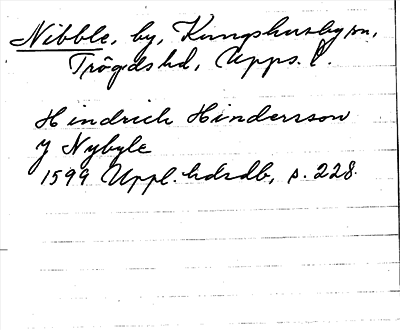 Nibble, by, Kungshusby sn,
Trögds hd, Upps. l.
Hindrich Hindersson
y Nybyle
1599 Uppl. hdrdb, s. 228.